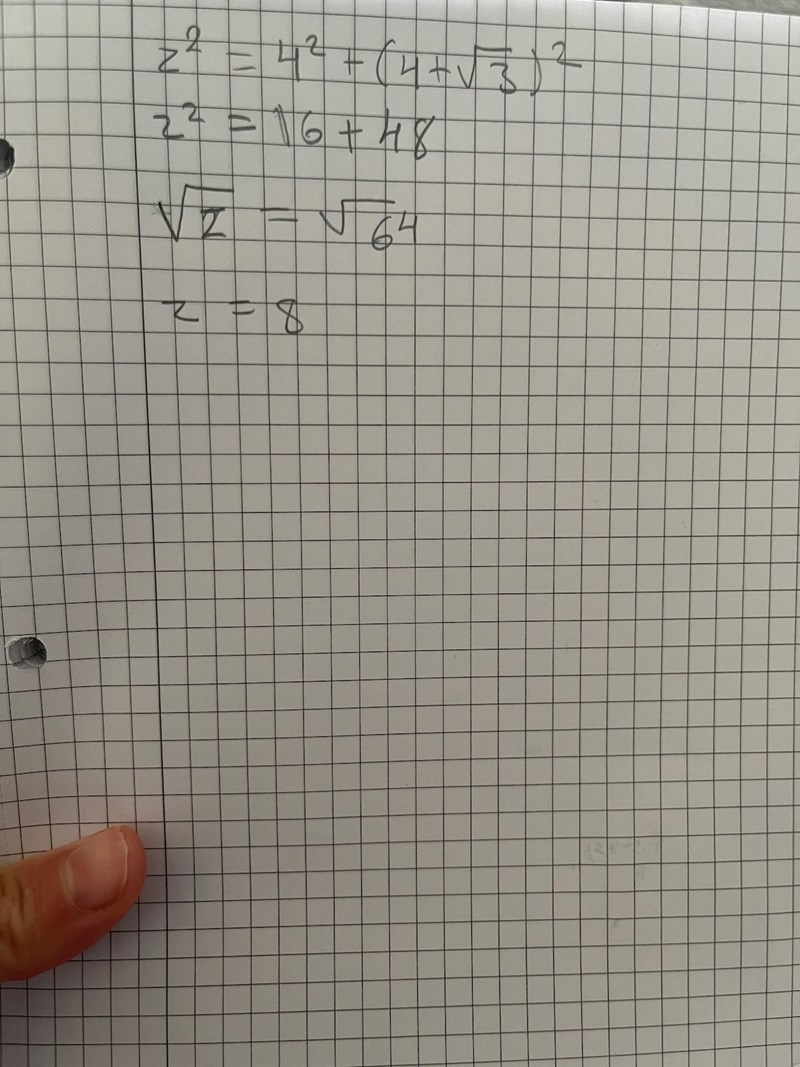 z² = 4² + (4+√3)²
z² = 16 + 48
√z = √64
z = 8